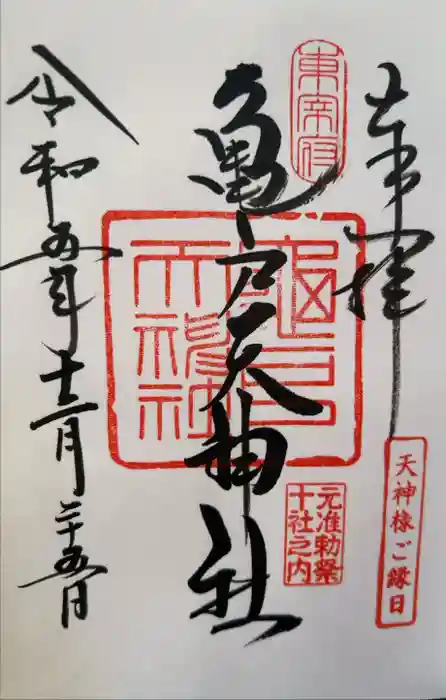 奉拝
天神様ご縁日
東宰府
亀戸天神社
亀戸
天神社
元准勅祭
十社之内
令和五年十二月二十五日